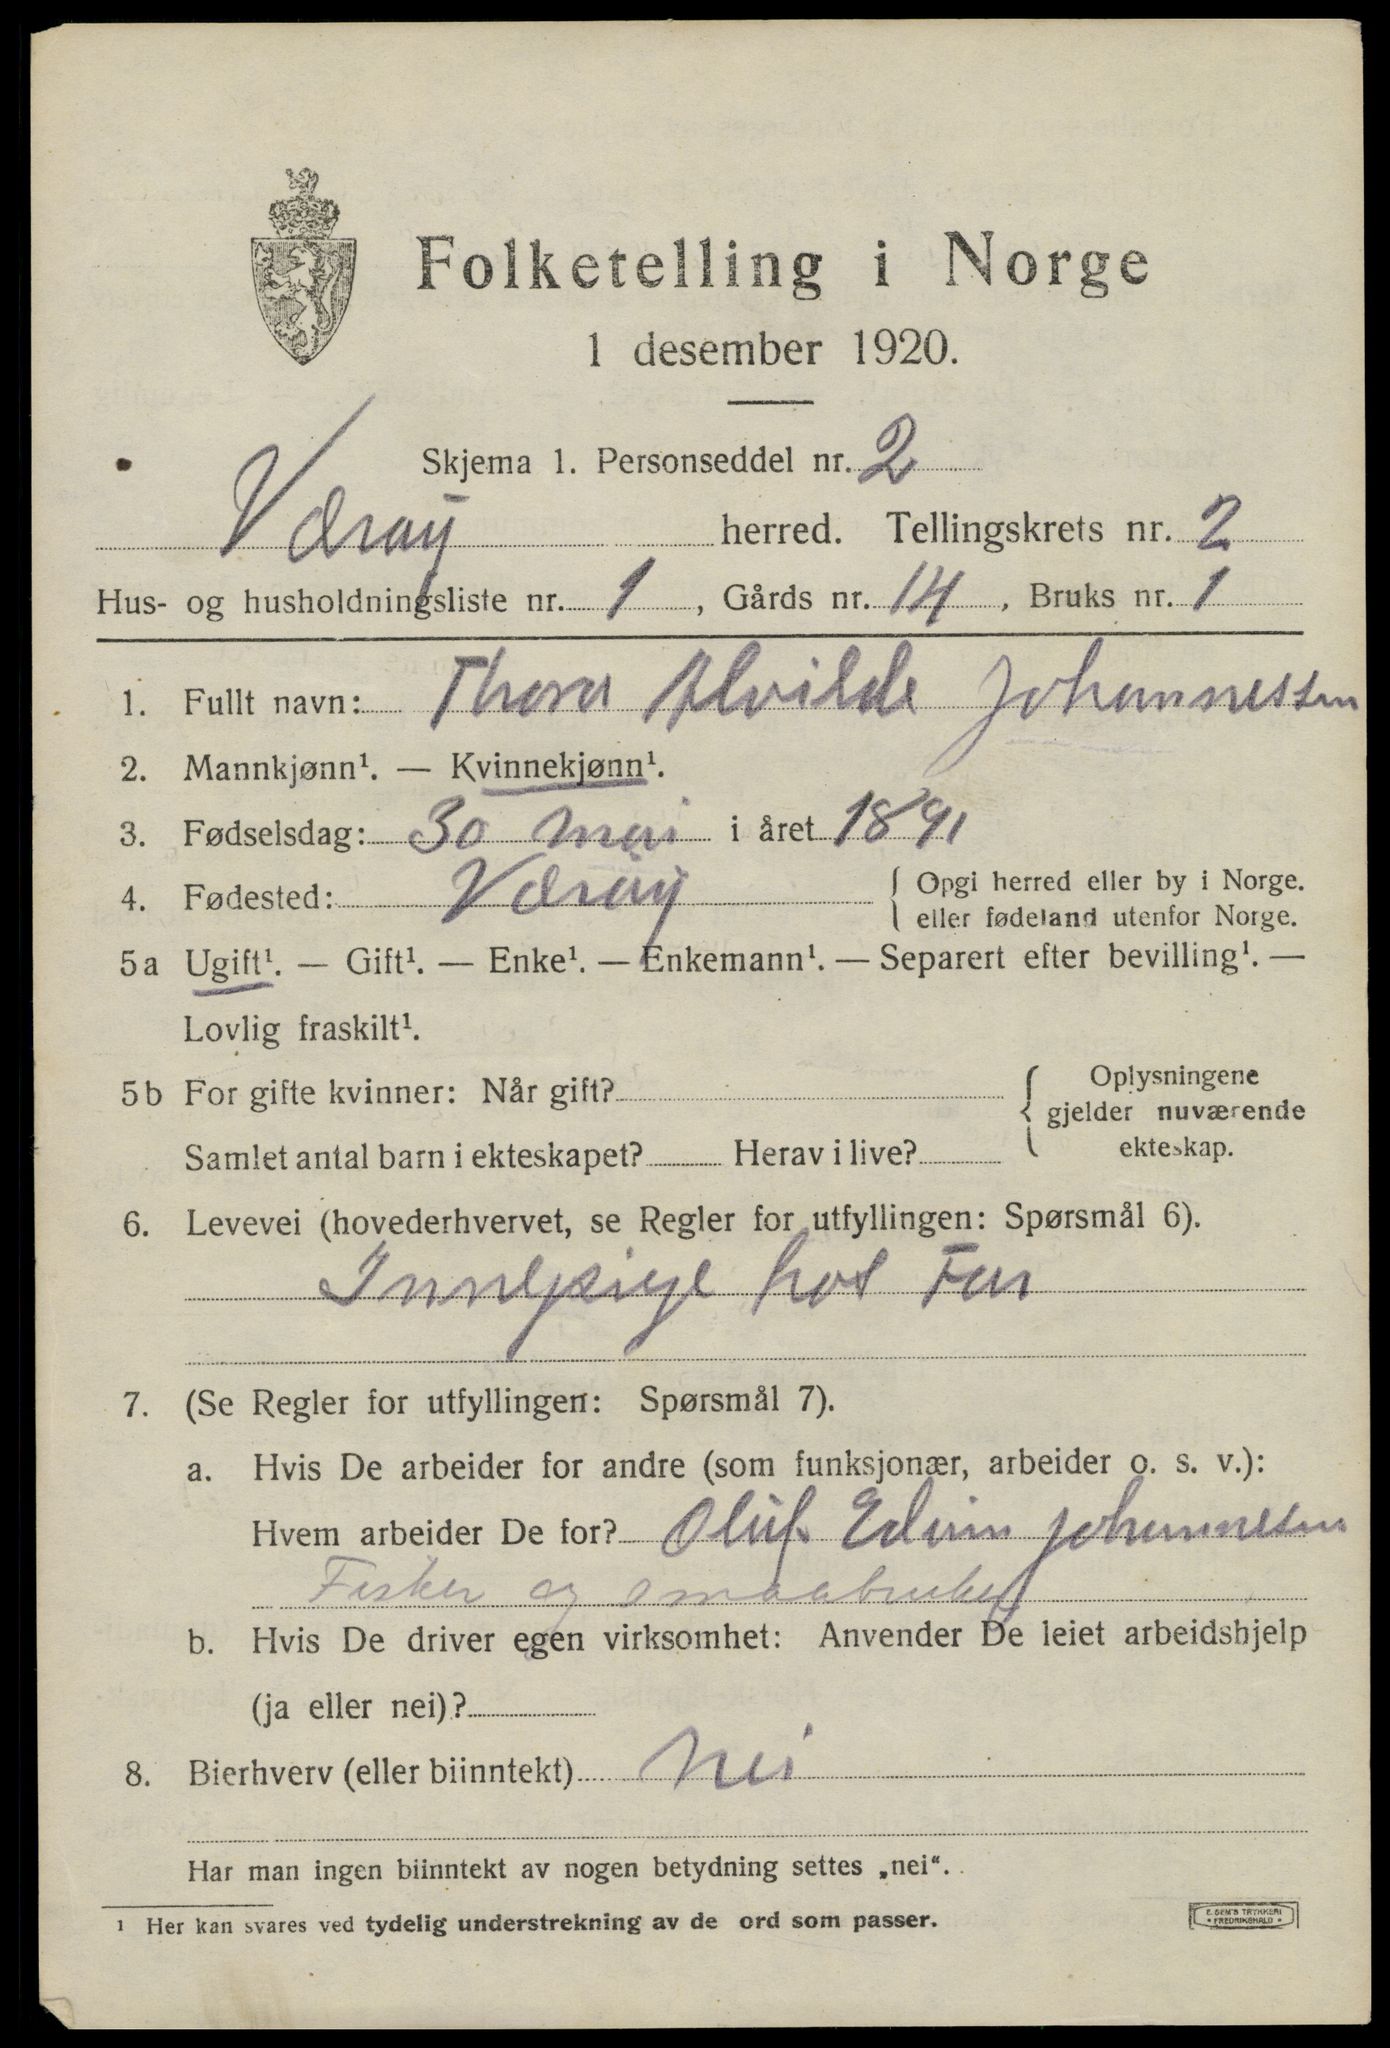 Folketelling i Norge
1 desember 1920.
Skjema 1. Personseddel nr. 2
Værøy herred. Tellingskrets nr. 2
Hus- og husholdningsliste nr. 1, Gårds nr. 14, Bruks nr. 1
1. Fullt navn: Thora Alvilde Johannessen
2. Mannkjønn¹. — Kvinnekjønn¹.
3. Fødselsdag: 30 mai i året 1891
4. Fødested: Værøy { Opgi herred eller by i Norge.
eller fødeland utenfor Norge.
5a Ugift¹. — Gift¹. — Enke¹. — Enkemann¹. — Separert efter bevilling¹. —
Lovlig fraskilt¹.
5b For gifte kvinner: Når gift? { Oplysningene
gjelder nuværende
ekteskap.
Samlet antal barn i ekteskapet? Herav i live?
6. Levevei (hovederhvervet, se Regler for utfyllingen: Spørsmål 6).
Innepige hos Far
7. (Se Regler for utfyllingen: Spørsmål 7).
a. Hvis De arbeider for andre (som funksjonær, arbeider o. s. v.):
Hvem arbeider De for? Oluf Edvin Johannessen
Fisker og smaabruker
b. Hvis De driver egen virksomhet: Anvender De leiet arbeidshjelp
(ja eller nei)?
8. Bierhverv (eller biinntekt) Nei
Har man ingen biinntekt av nogen betydning settes „nei“.
¹ Her kan svares ved tydelig understrekning av de ord som passer.
E. SEM'S TRYKKERI
• FREDRIKSHALD •